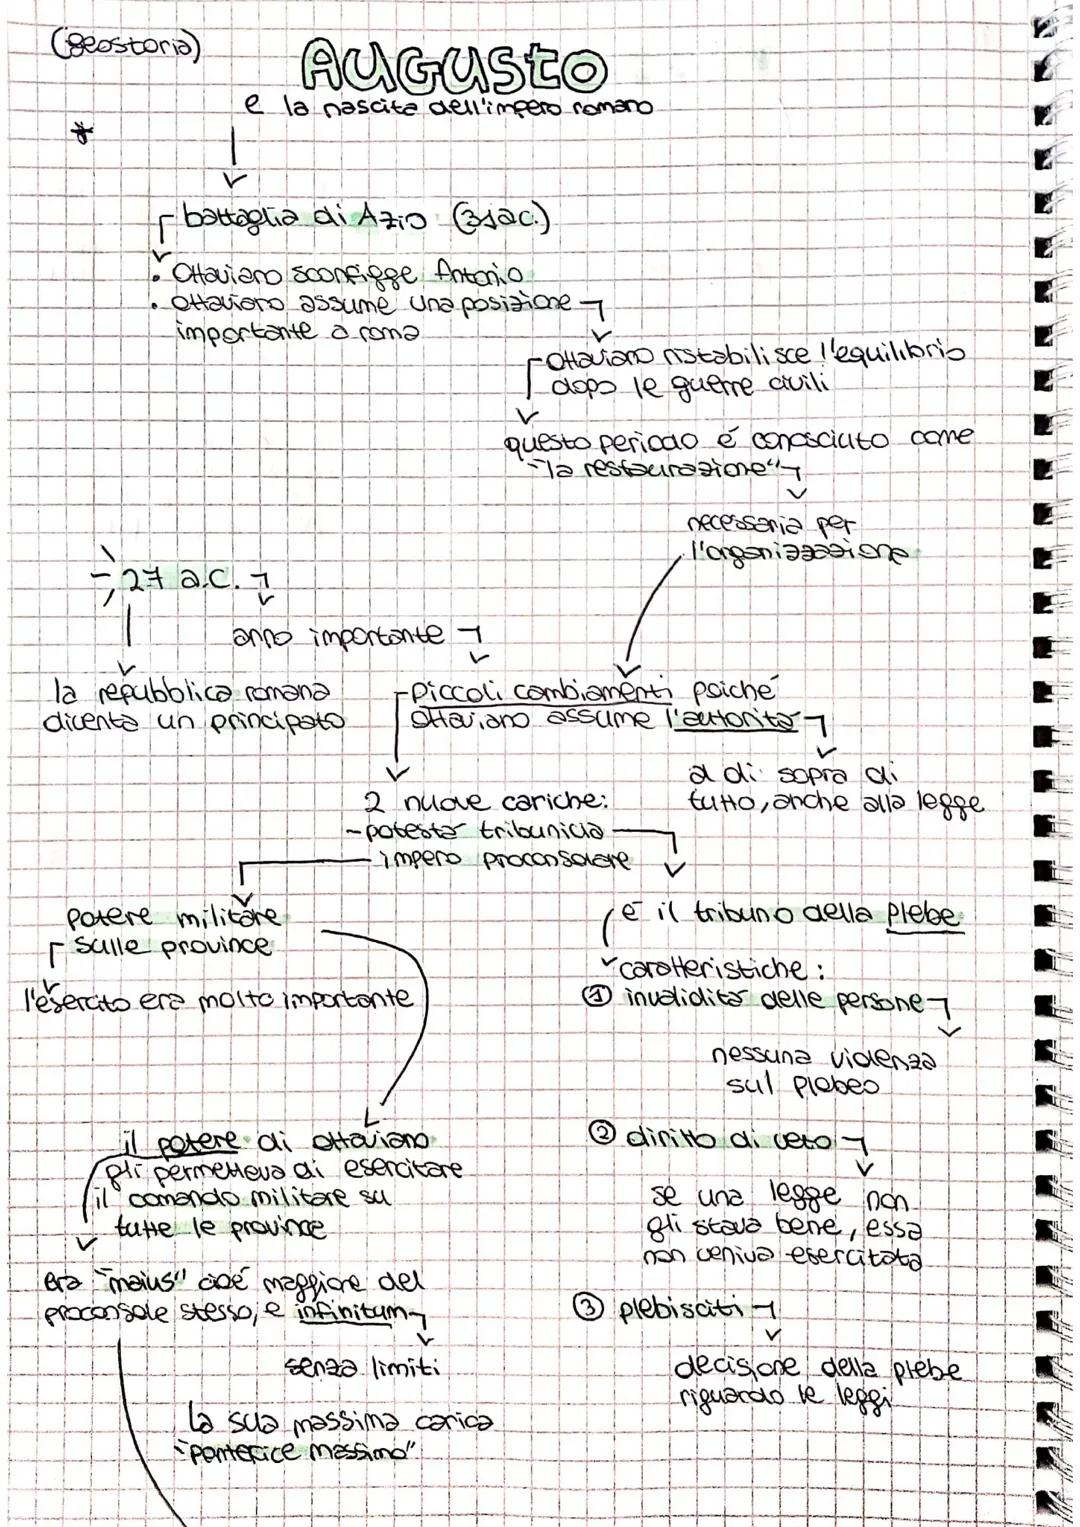 (geostoria)
AUGUSTO
e la nascita dell'impero romano
*
battaglia di Azio (31a.c.)
• Ottaviano sconfigge Antonio
• ottaviano assume una posizione
importante a roma
ottaviano ristabilisce l'equilibrio
dopo le guerre civili
questo periodo é conosciuto come
"la restaurazione"
necessaria per
l'organizzazione
27 a.C.
anno importante
la repubblica romana
diventa un principato
piccoli cambiamenti poiché
ottaviano assume l'autorità
al di sopra di
tutto, anche alla legge
2 nuove cariche:
-potestà tribunicia
-impero proconsolare
potere militare
sulle province
l'esercito era molto importante
é il tribuno della plebe
caratteristiche:
① invalidità delle persone
nessuna violenza
sul plebeo
il potere di ottaviano
gli permetteva di esercitare
il comando militare su
tutte le province
② diritto di veto
se una legge non
gli stava bene, essa
non veniva esercitata
era "maius" cioé maggiore del
proconsole stesso, e infinitum
senza limiti
③ plebisciti
decisione della plebe
riguardo le leggi
la sua massima carica
"pontefice massimo"